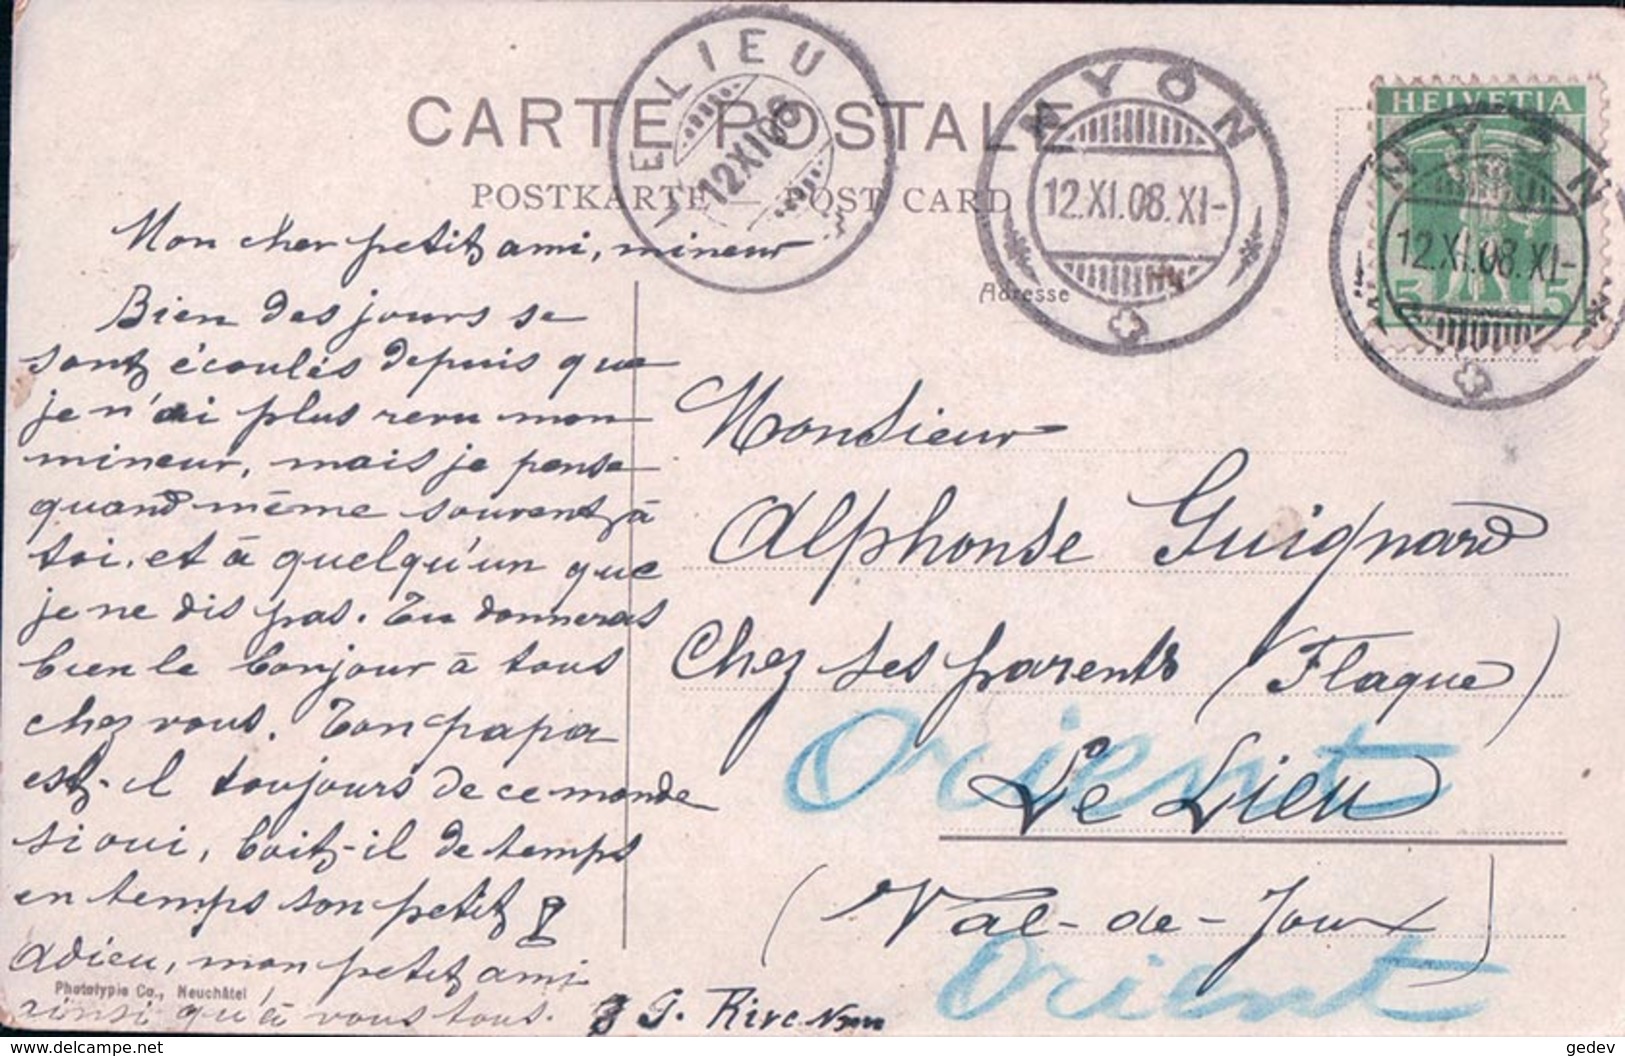 CARTE POSTALE
POSTKARTE — POST CARD
LE LIEU
12 XI 08
NYON
12.XI.08.XI-
HELVETIA
NYON
12.XI.08.XI-
5 5
FRANCO
Adresse
Mon cher petit ami, mineur
Bien des jours se
sont écoulés depuis que
je n'ai plus revu mon
mineur, mais je pense
quand même souvent à
toi. et à quelqu'un que
je ne dis pas. Tu donneras
bien le bonjour à tous
chez vous. Ton papa
est-il toujours de ce monde
si oui, boit-il de temps
en temps son petit
Adieu, mon petit ami
ainsi qu'à vous tous.
Phototypie Co., Neuchâtel
Monsieur
Alphonse Guignard
Chez ses parents (Flaque)
Orient
Le Lieu
(Val-de-Joux)
Orient
delcampe.net
gedev